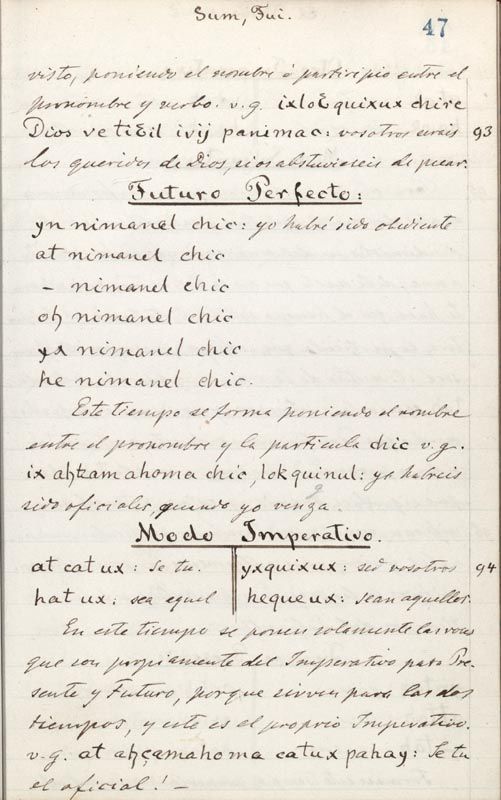 Sum, Fui.
47
visto, poniendo el nombre ó participio entre el
pronombre y verbo. v.g. ixloƐquixux chire
Dios ve tiƐil ivij panimac: vosotros erais 93
los queridos de Dios, si os abstuvieseis de pecar.
Futuro Perfecto:
yn nimanel chic: yo habré sido obediente
at nimanel chic
– nimanel chic
oh nimanel chic
yx nimanel chic
he nimanel chic.
Este tiempo se forma poniendo el nombre
entre el pronombre y la particula chic v.g.
ix ahtzamahoma chic, lok quinul: ya habreis
sido oficiales, quando yo venga.
Modo Imperativo.
at cat ux: Se tu. yxquixux: sed vosotros 94
hat ux: sea aquel hequeux: sean aquellos.
En este tiempo se ponen solamente las voces
que son propiamente del Imperativo para Pre-
sente y Futuro, porque sirven para los dos
tiempos, y este es el proprio Imperativo.
v.g. at ahçamahoma catux pahay: Se tu
el oficial! –